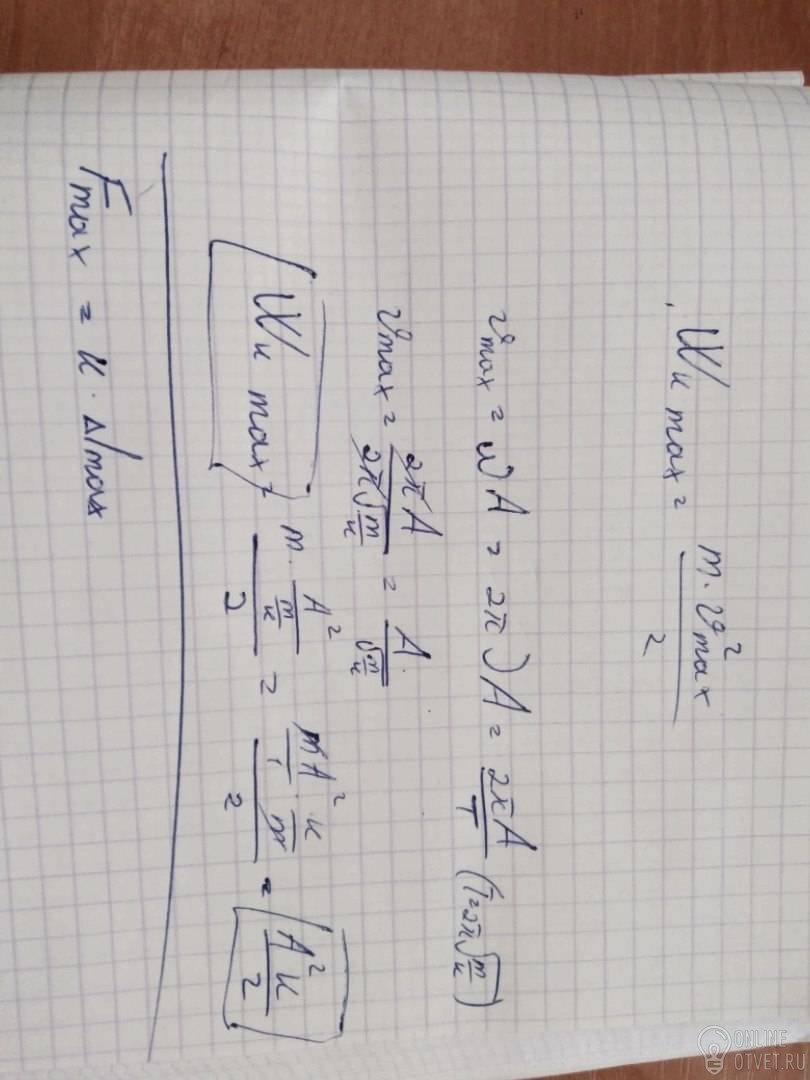 Wк max = m·υ²max / 2
υmax = ωA = 2π νA = 2πA / T (T=2π√(m/к))
υmax = 2πA / 2π√(m/к) = A / √(m/к)
Wк max = (m · A² / (m/к)) / 2 = (mA²/1 · к/m) / 2 = A²к / 2
Fmax = к · Δlmax
ONLINE
OTVET.RU